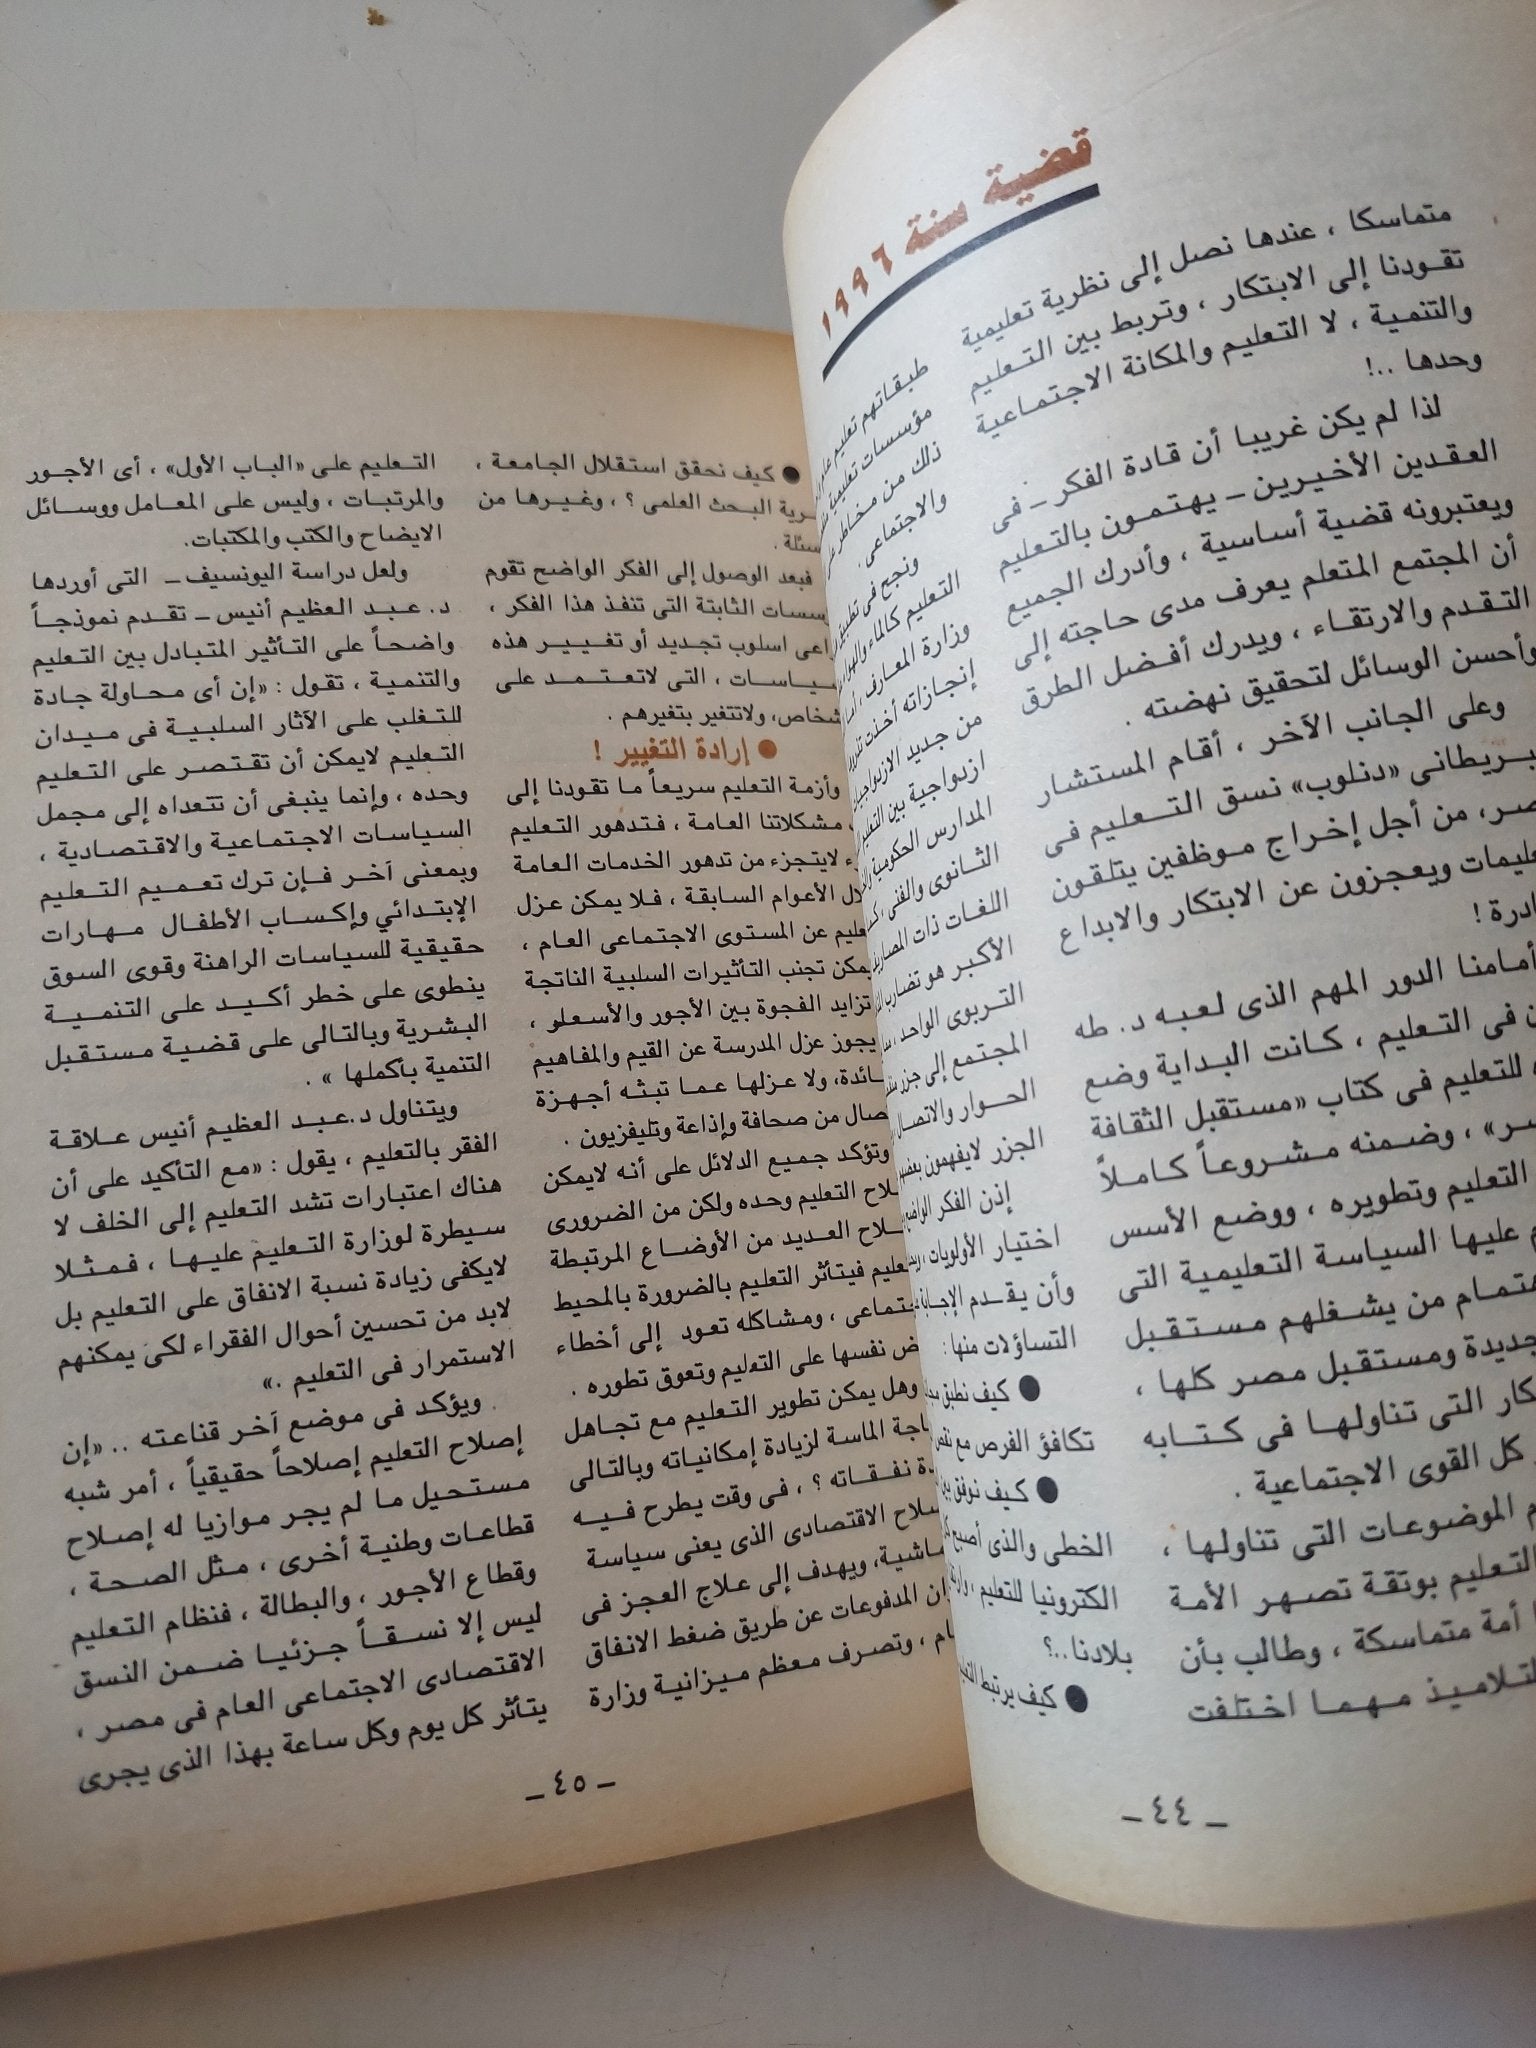 قضية سنة ١٩٩٦
متماسكا ، عندها نصل إلى نظرية تعليمية
تقودنا إلى الابتكار ، وتربط بين التعليم
والتنمية ، لا التعليم والمكانة الاجتماعية
وحدها ..!
لذا لم يكن غريبا أن قادة الفكر – فى
العقدين الأخيرين – يهتمون بالتعليم
ويعتبرونه قضية أساسية ، وأدرك الجميع
أن المجتمع المتعلم يعرف مدى حاجته إلى
التقدم والارتقاء ، ويدرك أفضل الطرق
وأحسن الوسائل لتحقيق نهضته .
وعلى الجانب الآخر ، أقام المستشار
«دنلوب» نسق التعليم فى
من أجل إخراج موظفين يتلقون
ويعجزون عن الابتكار والابداع
أمامنا الدور المهم الذى لعبه د. طه
فى التعليم ، كانت البداية وضع
للتعليم فى كتاب «مستقبل الثقافة
، وضمنه مشروعاً كاملاً
التعليم وتطويره ، ووضع الأسس
عليها السياسة التعليمية التى
من يشغلهم مستقبل
ومستقبل مصر كلها ،
التى تناولها فى كتابه
كل القوى الاجتماعية .
الموضوعات التى تناولها ،
التعليم بوتقة تصهر الأمة
أمة متماسكة ، وطالب بأن
مهما اختلفت
طبقاتهم تعليم
مؤسسات تعليمية
ذلك من مخاطر
والاجتماعى .
ونجح فى
التعليم كالماء والهواء
وزارة المعارف ،
إنجازاته أخذت
من جديد
ازدواجية بين
المدارس الحكومية
الثانوى والفنى ،
اللغات ذات
الأكبر هو تضارب
التربوى الواحد ،
المجتمع إلى جزر
الحوار والاتصال
الجزر لايفهمون
إذن الفكر
اختيار الأولويات ،
وأن يقدم
التساؤلات منها :
● كيف نطبق
تكافؤ الفرص مع
● كيف نوفق
الخطى والذى أصبح
الكترونيا للتعليم ،
بلادنا ..؟
● كيف يرتبط
– ٤٤ –
● كيف نحقق استقلال الجامعة ،
البحث العلمى ؟ ، وغيرها من
فبعد الوصول إلى الفكر الواضح تقوم
الثابتة التى تنفذ هذا الفكر ،
اسلوب تجديد أو تغيير هذه
، التى لاتعتمد على
، ولاتتغير بتغيرهم .
● إرادة التغيير !
وأزمة التعليم سريعاً ما تقودنا إلى
مشكلاتنا العامة ، فتدهور التعليم
لايتجزء من تدهور الخدمات العامة
الأعوام السابقة ، فلا يمكن عزل
عن المستوى الاجتماعى العام ،
تجنب التأثيرات السلبية الناتجة
تزايد الفجوة بين الأجور والأسعلو ،
يجوز عزل المدرسة عن القيم والمفاهيم
، ولا عزلها عما تبثه أجهزة
من صحافة وإذاعة وتليفزيون .
وتؤكد جميع الدلائل على أنه لايمكن
التعليم وحده ولكن من الضرورى
العديد من الأوضاع المرتبطة
فيتأثر التعليم بالضرورة بالمحيط
، ومشاكله تعود إلى أخطاء
نفسها على التعليم وتعوق تطوره .
وهل يمكن تطوير التعليم مع تجاهل
الماسة لزيادة إمكانياته وبالتالى
نفقاته ؟ ، فى وقت يطرح فيه
الاقتصادى الذى يعنى سياسة
، ويهدف إلى علاج العجز فى
المدفوعات عن طريق ضغط الانفاق
، وتصرف معظم ميزانية وزارة
التعليم على «الباب الأول» ، أى الأجور
والمرتبات ، وليس على المعامل ووسائل
الايضاح والكتب والمكتبات.
ولعل دراسة اليونسيف – التى أوردها
د. عبد العظيم أنيس – تقدم نموذجاً
واضحاً على التأثير المتبادل بين التعليم
والتنمية ، تقول : «إن أى محاولة جادة
للتغلب على الآثار السلبية فى ميدان
التعليم لايمكن أن تقتصر على التعليم
وحده ، وإنما ينبغى أن تتعداه إلى مجمل
السياسات الاجتماعية والاقتصادية ،
وبمعنى آخر فإن ترك تعميم التعليم
الإبتدائي وإكساب الأطفال مهارات
حقيقية للسياسات الراهنة وقوى السوق
ينطوى على خطر أكيد على التنمية
البشرية وبالتالى على قضية مستقبل
التنمية بأكملها » .
ويتناول د.عبد العظيم أنيس علاقة
الفقر بالتعليم ، يقول : «مع التأكيد على أن
هناك اعتبارات تشد التعليم إلى الخلف لا
سيطرة لوزارة التعليم عليها ، فمثلا
لايكفى زيادة نسبة الانفاق على التعليم بل
لابد من تحسين أحوال الفقراء لكى يمكنهم
الاستمرار فى التعليم .»
ويؤكد فى موضع آخر قناعته .. «إن
إصلاح التعليم إصلاحاً حقيقياً ، أمر شبه
مستحيل ما لم يجر موازيا له إصلاح
قطاعات وطنية أخرى ، مثل الصحة ،
وقطاع الأجور ، والبطالة ، فنظام التعليم
ليس إلا نسقاً جزئيا ضمن النسق
الاقتصادى الاجتماعى العام فى مصر ،
يتأثر كل يوم وكل ساعة بهذا الذى يجرى
– ٤٥ –